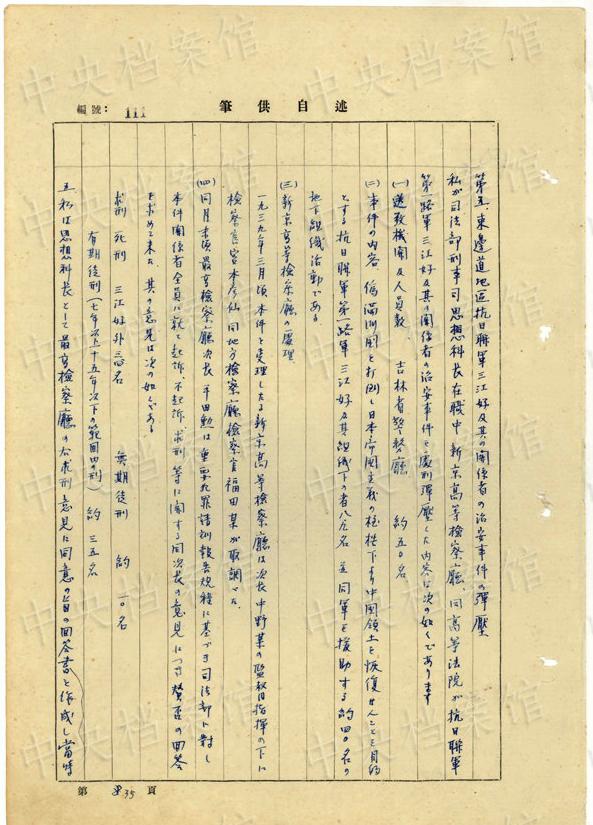 編號：111
筆供自述
第五、東邊道地區抗日聯軍三江好及其の関係者の治安事件の弾壓
私が司法部刑事司思想科長在職中、新京高等檢察廳、同高等法院が抗日聯軍
第一路軍三江好及其の関係者の治安事件を處刑弾壓した内容は次の如くであります
(一)送致機関及人員数、吉林省警務廳 約五〇名
(二)事件の内容 偽満洲國を打倒し日本帝國主義の桎梏下より中國領土を恢復せんことを目的
とする抗日聯軍第一路軍三江好及其組織下の者 名 並同軍を援助する約四〇名の
地下組織活動である
(三)新京高等檢察廳の處理
一九三九年三月頃本件を受理したる新京高等檢察廳は次長中野某の監督指揮の下に
檢察官宮本彦仙、同地方檢察廳檢察官福田某が取調べた
(四)同月末頃最高檢察廳次長平田勲は重要犯罪請訓報告規程に基づき司法部に對し
本件関係者全員に就て起訴、不起訴、求刑等に関する同次長の意見につき賛否の回答
を求めて来た 其の意見は次の如くである
求刑 死刑 三江好外 名 無期徒刑 約一〇名
有期徒刑(七年以上十五年以下の範囲の刑) 約三五名
五、私は思想科長として最高檢察廳の右求刑意見に同意の旨の回答書を作成し當時
第 35 頁
中央档案馆